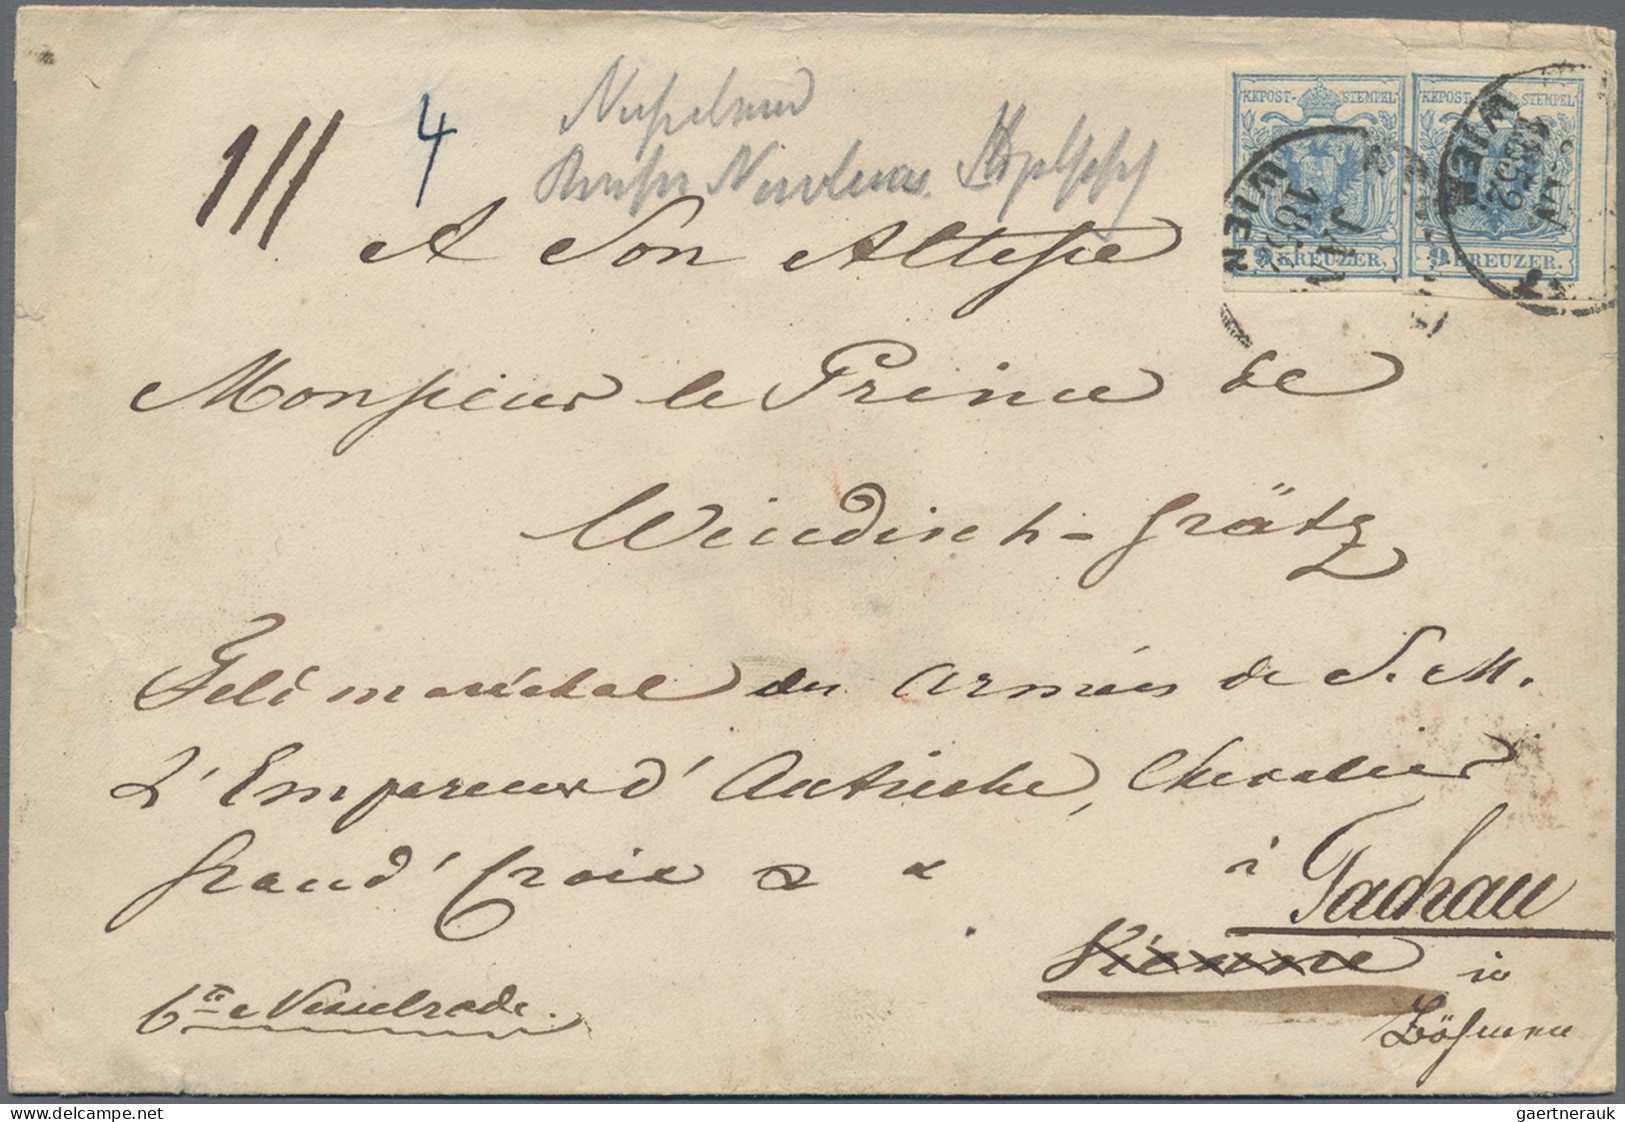 4
A Son Altesse
Monsieur le Prince de
Windisch-Grätz
Feld maréchal des armées de S. M.
L'Empereur d'Autriche, Chevalier
Grand' Croix & &
à Tachau
Vienne in
Böhmen
Cte Nesselrode.
KKPOST-STEMPEL
9 KREUZER.
KKPOST-STEMPEL
9 KREUZER.
WIEN
WIEN
gaertnerauk / delcampe.net